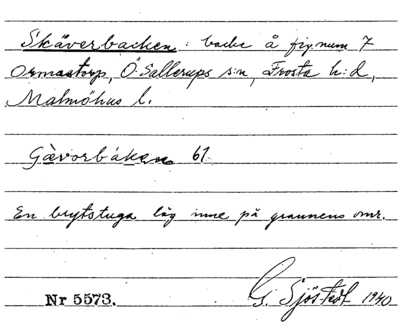 Skäverbacken: backe å fig. num 7
Ormastorp, Ö. Sallerups s:n, Frosta h:d,
Malmöhus l.
Gàvorbákan 61.
En brytstuga låg inne på grannens omr.
Nr 5573. G. Sjöstedt 1940